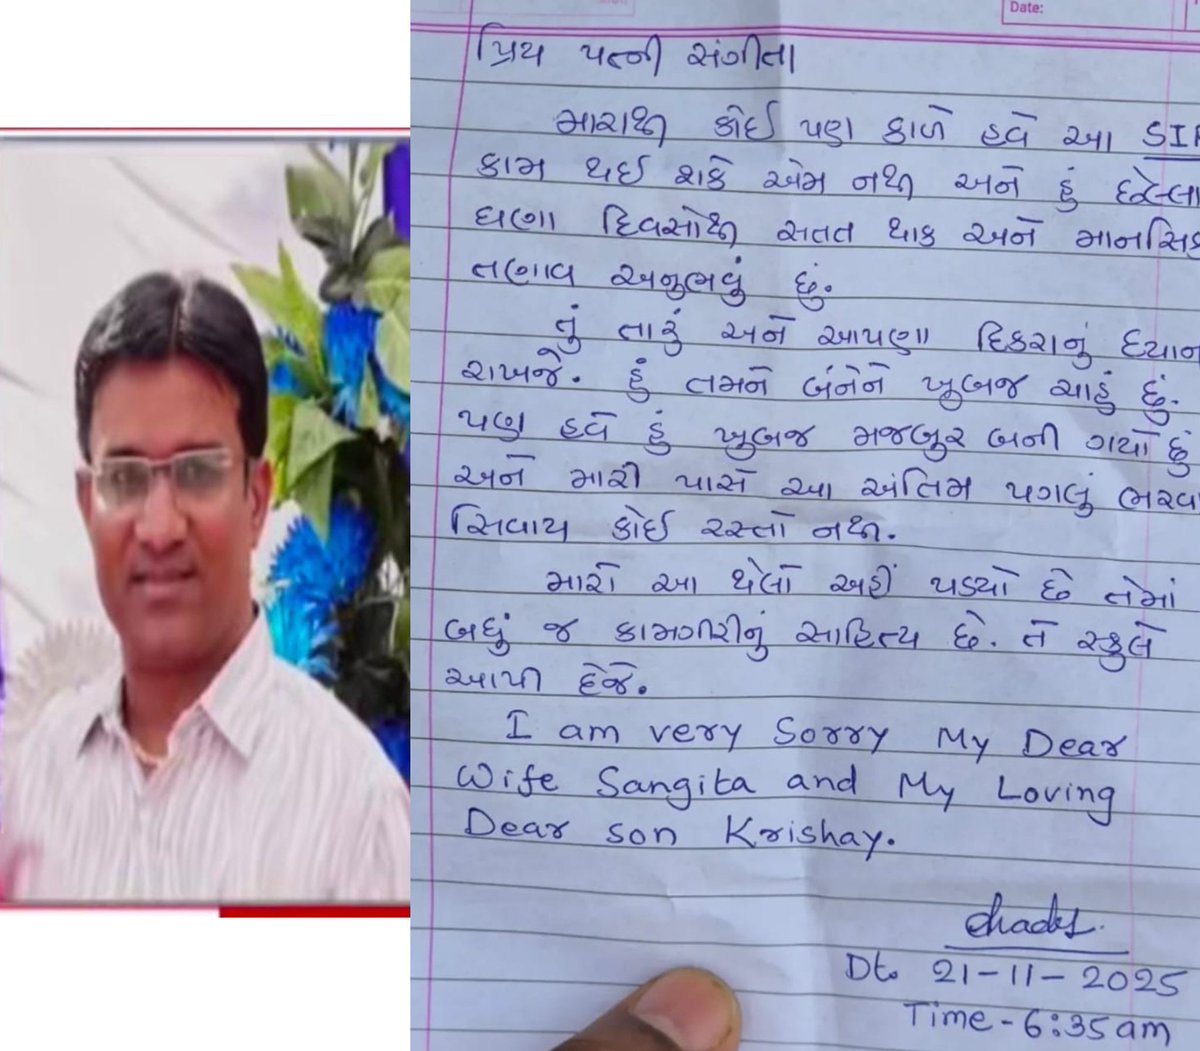 Date:
પ્રિય પત્ની સંગીતા
મારાથી કોઈ પણ કાળે હવે આ SIR
કામ થઈ શકે એમ નથી અને હું છેલ્લા
ઘણા દિવસોથી સતત થાક અને માનસિક
તણાવ અનુભવું છું.
તું તારું અને આપણા દિકરાનું ધ્યાન
રાખજે. હું તમને બંનેને ખુબજ ચાહું છું.
પણ હવે હું ખુબજ મજબુર બની ગયો છું
અને મારી પાસે આ અંતિમ પગલું ભરવા
સિવાય કોઈ રસ્તો નથી.
મારો આ થેલો અહીં પડ્યો છે તેમાં
બધું જ કામગીરીનું સાહિત્ય છે. તે સ્કુલે
આપી દેજે.
I am very Sorry My Dear
Wife Sangita and My Loving
Dear son Krishay.
Dt. 21-11-2025
Time - 6:35 am